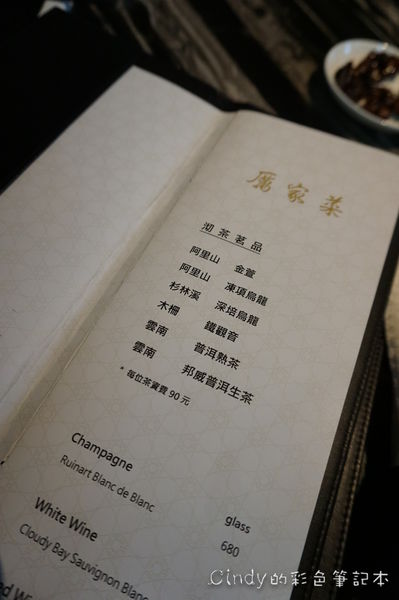 厲家菜
沏茶茗品
阿里山 金萱
阿里山 凍頂烏龍
杉林溪 深焙烏龍
木柵 鐵觀音
雲南 普洱熟茶
雲南 邦威普洱生茶
* 每位茶資費 90 元
Champagne
Ruinart Blanc de Blanc
glass
White Wine
680
Cloudy Bay Sauvignon Blanc
Cindy的彩色筆記本